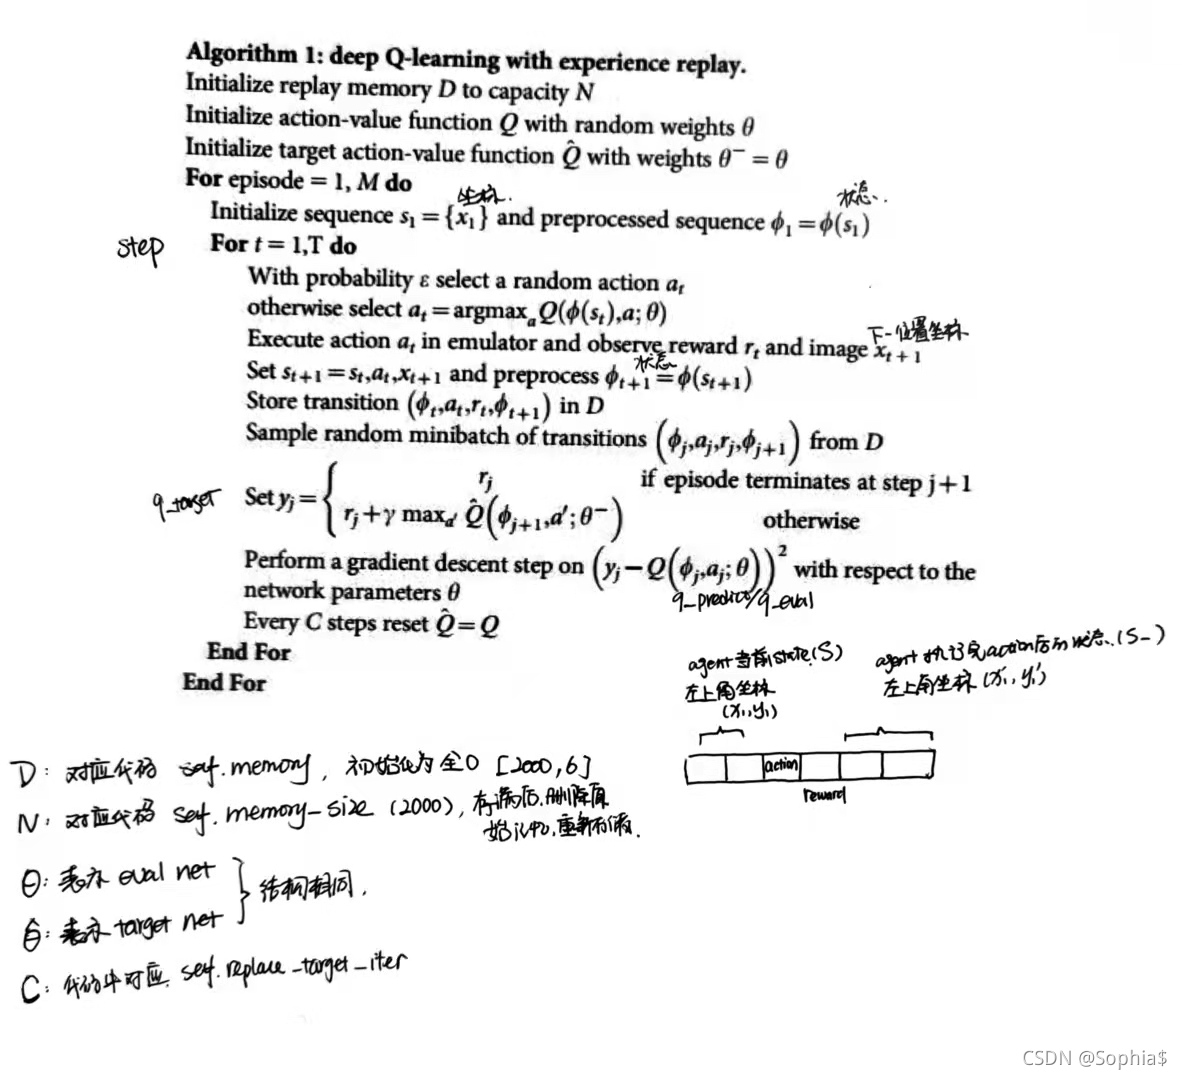 Algorithm 1: deep Q-learning with experience replay.
Initialize replay memory D to capacity N
Initialize action-value function Q with random weights θ
Initialize target action-value function Q̂ with weights θ⁻ = θ
For episode = 1, M do
坐标.
状态..
Initialize sequence s₁ = {x₁} and preprocessed sequence ϕ₁ = ϕ(s₁)
step
For t = 1,T do
With probability ε select a random action aₜ
otherwise select aₜ = argmaxₐ Q(ϕ(sₜ),a; θ)
下一位置坐标
Execute action aₜ in emulator and observe reward rₜ and image xₜ₊₁
状态
Set sₜ₊₁ = sₜ,aₜ,xₜ₊₁ and preprocess ϕₜ₊₁ = ϕ(sₜ₊₁)
Store transition (ϕₜ,aₜ,rₜ,ϕₜ₊₁) in D
Sample random minibatch of transitions (ϕⱼ,aⱼ,rⱼ,ϕⱼ₊₁) from D
q_target
Set yⱼ = { rⱼ if episode terminates at step j+1
rⱼ + γ maxₐ′ Q̂(ϕⱼ₊₁,a′; θ⁻) otherwise
Perform a gradient descent step on (yⱼ − Q(ϕⱼ,aⱼ; θ))² with respect to the
network parameters θ
q_predict/q_eval
Every C steps reset Q̂ = Q
End For
End For
agent当前state(S)
左上角坐标
(x₁,y₁)
agent执行完action后的状态.(S_)
左上角坐标(x₁′,y₁′)
action
reward
D: 对应代码 self.memory, 初始化为全0 [2000,6]
N: 对应代码 self.memory_size (2000), 存满后,删除原
始记忆,重新存储.
θ: 表示 eval net
θ̂: 表示 target net
结构相同.
C: 代码中对应. self.replace_target_iter
CSDN @Sophia$